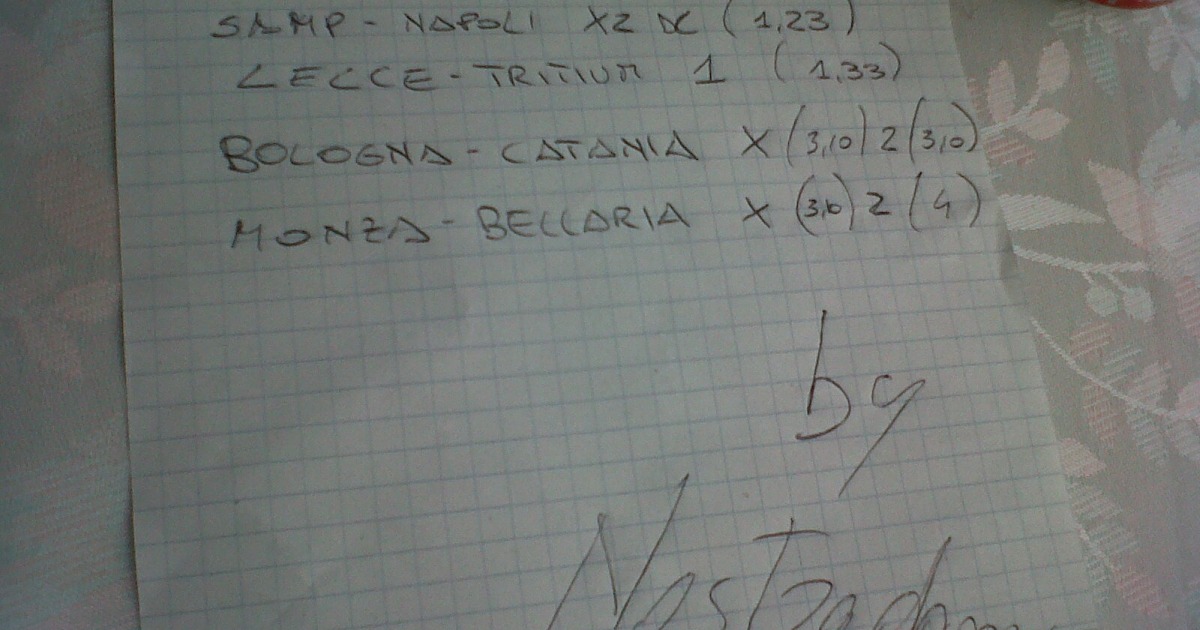 SAMP - NAPOLI X2 DC (1,23)
LECCE - TRITIUM 1 (1,33)
BOLOGNA - CATANIA X (3,10) 2 (3,10)
MONZA - BELLARIA X (3,10) 2 (4)
by
Nostradam